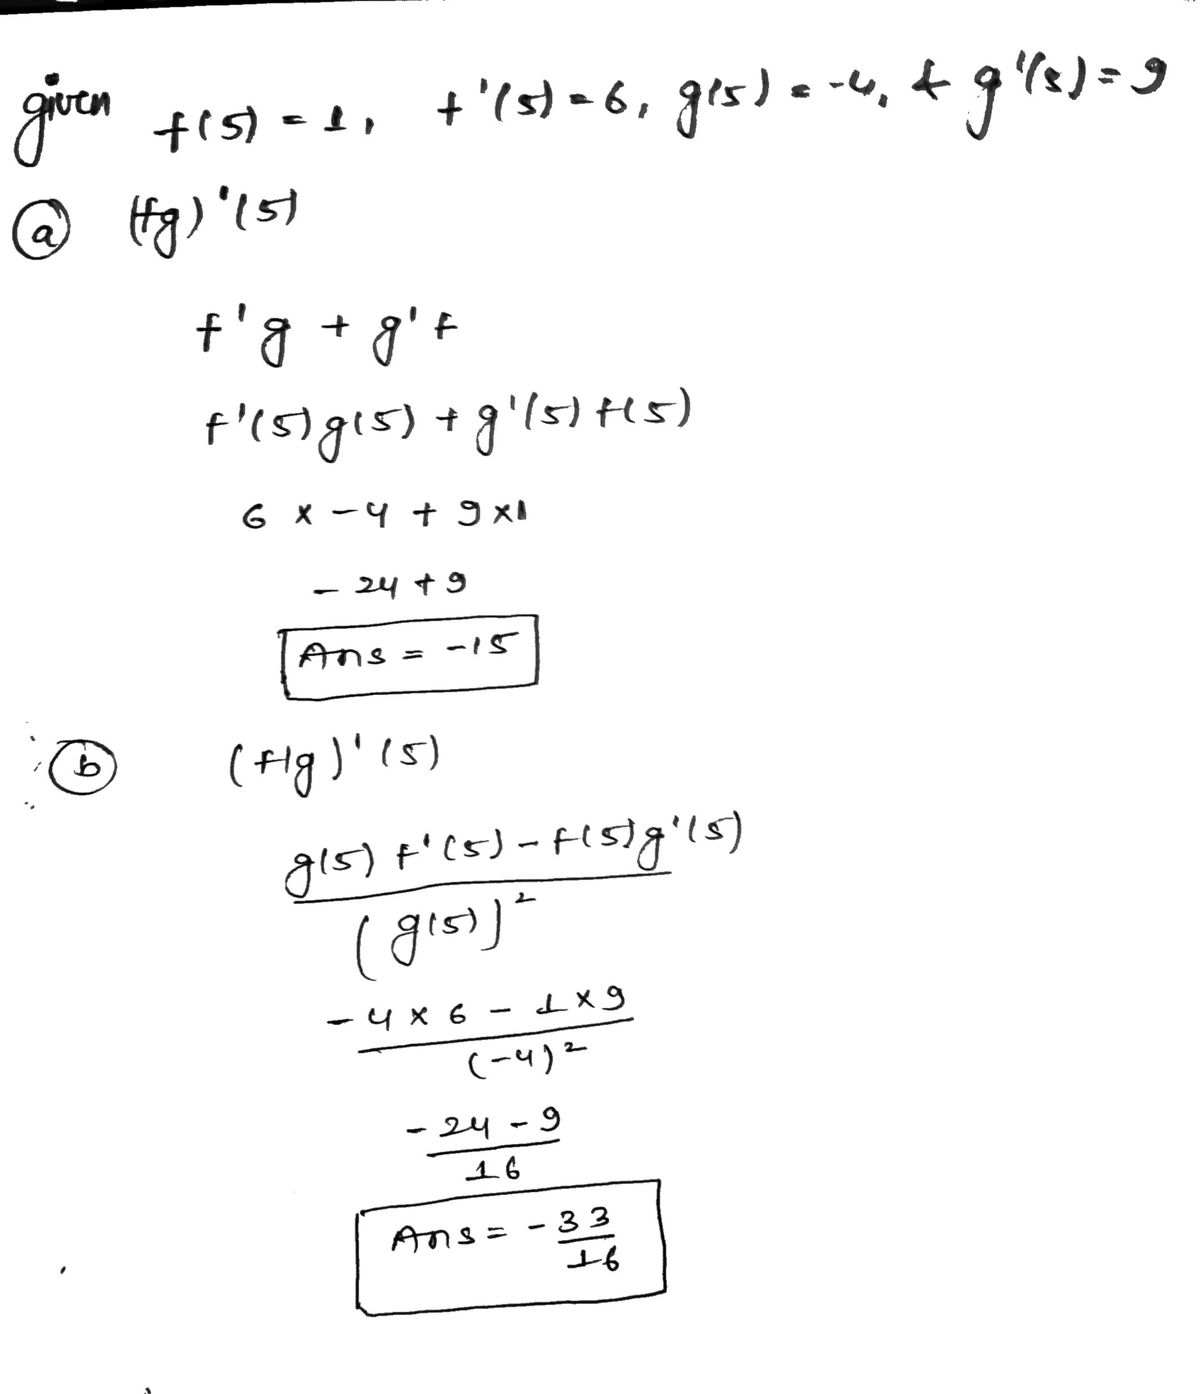 given f(5) = 1, f'(5) = 6, g(5) = -4, & g'(5) = 9
(a) (fg)'(5)
f'g + g'f
f'(5)g(5) + g'(5) f(5)
6 x -4 + 9 x1
- 24 + 9
Ans = -15
(b) (f/g)'(5)
g(5) f'(5) - f(5)g'(5)
(g(5))²
-4 x 6 - 1 x 9
(-4)²
- 24 - 9
16
Ans = - 33
16